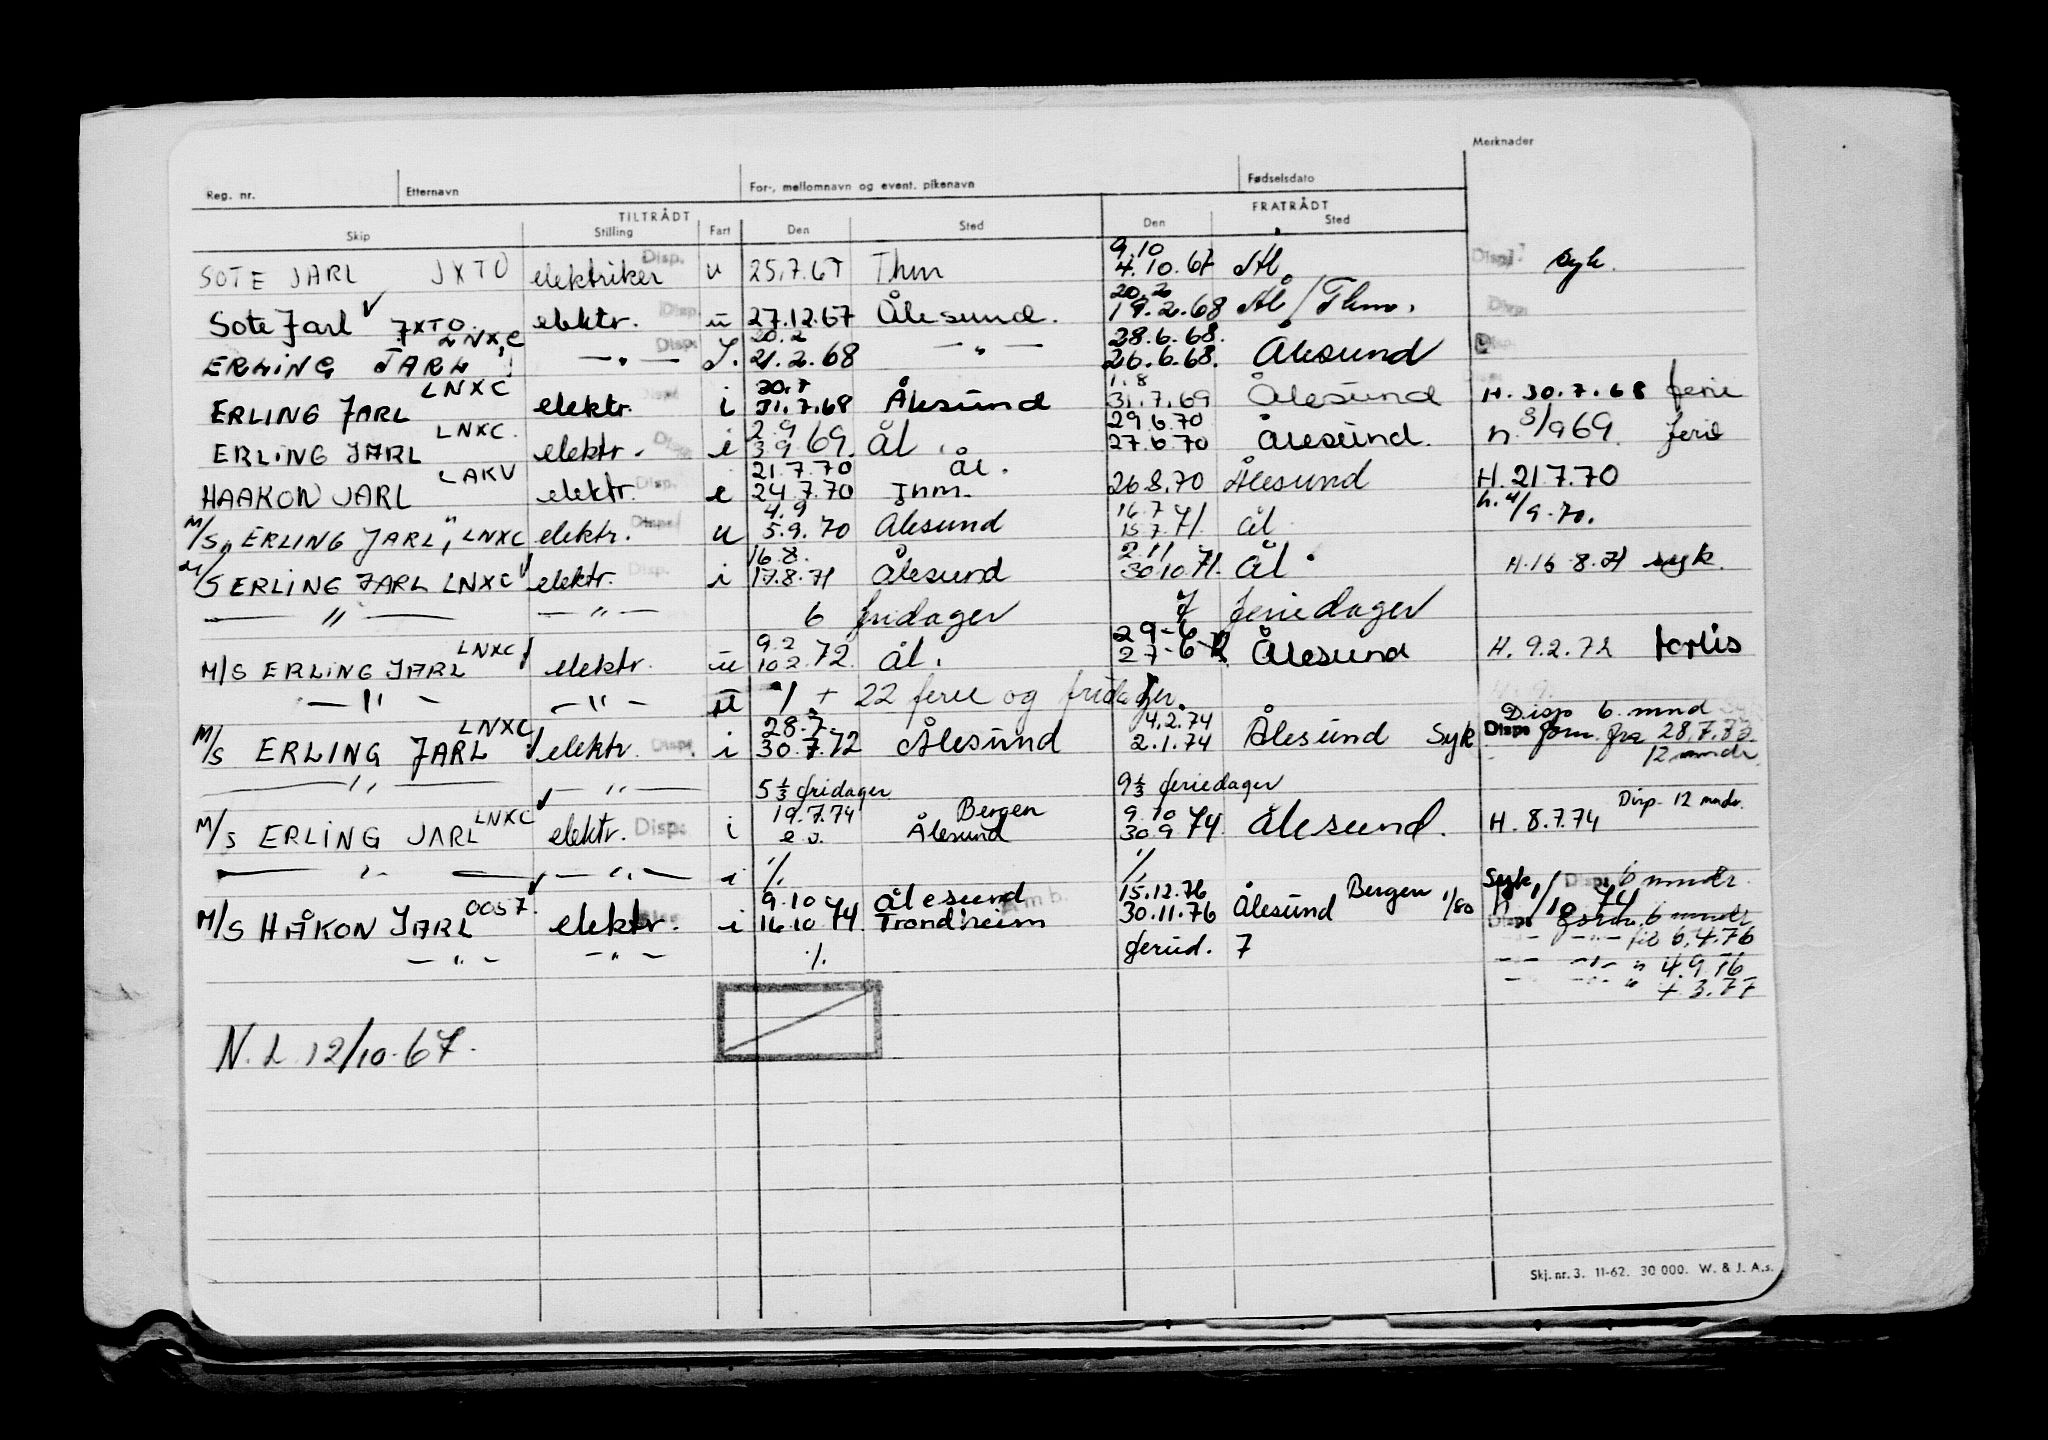 Merknader
Reg. nr. Etternavn For-, mellomnavn og event. pikenavn Fødselsdato
TILTRÅDT FRATRÅDT
Skip Stilling Fart Den Sted Den Sted
9.10
SOTE JARL JXTO elektriker Disp. u 25.7.67 Thm 4.10.67 Ål Disp. syk.
20.2
Sote Jarl JXTO elektr. Disp. u 27.12.67 Ålesund. 19.2.68 Ål/Thm. Disp.
LNXC 20.2 28.6.68.
ERLING JARL — " — Disp. I. 21.2.68 — " — 26.6.68. Ålesund Disp.
LNXC 30.7 1.8
ERLING JARL elektr. Disp. i 31.7.68 Ålesund 31.7.69 Ålesund H. 30.7.68 ferie
LNXC 2.9 29.6.70
ERLING JARL elektr. Disp. i 3.9.69. Ål. 27.6.70 Ålesund. h. 3/9 69. ferie
LAKV 21.7.70 Ål.
HAAKON JARL elektr. Disp. i 24.7.70 Thm. 26.8.70 Ålesund H. 21.7.70
4.9 16.7
M/S "ERLING JARL", LNXC elektr. Disp. u 5.9.70 Ålesund 15.7.71. Ål. h. 4/9.70.
16.8. 2.11
M/S ERLING JARL LNXC elektr. Disp. i 17.8.71 Ålesund 30.10.71. Ål. H. 16.8.71 syk.
— " — — " — 6 fridager 7 feriedager
LNXC 9.2 29-6
M/S ERLING JARL elektr. u 10.2.72 Ål. 27-6-72 Ålesund H. 9.2.72 forlis
— " — — " — u % + 22 ferie og fridager.
LNXC 28.7 4.2.74 Disp 6. mnd
M/S ERLING JARL elektr. Disp. i 30.7.72 Ålesund 2.1.74 Ålesund Syk Disp. forn. fra 28.7.73
12 mndr
— " — — " — 5 1/3 fridager 9 1/3 feriedager
LNXC 19.7.74 Bergen 9.10 Disp. 12 mndr.
M/S ERLING JARL elektr. Disp. i e.o. Ålesund 30.9.74 Ålesund. H. 8.7.74
— " — — " — i % %
Syk Disp. 6 mndr.
0057 9.10 Ålesund 15.12.76 Bergen h. 1/10 74
M/S HÅKON JARL elektr. i 16.10.74 Trondheim 30.11.76 Ålesund 1/80 Disp. forn. 6 mndr
— " — — " — % feried. 7 — " — til 6.4.76
— " — " 4.9.76
— " — " 7.3.77
N.L. 12/10.67.
Skj. nr. 3. 11-62. 30 000. W. & J. A.s.